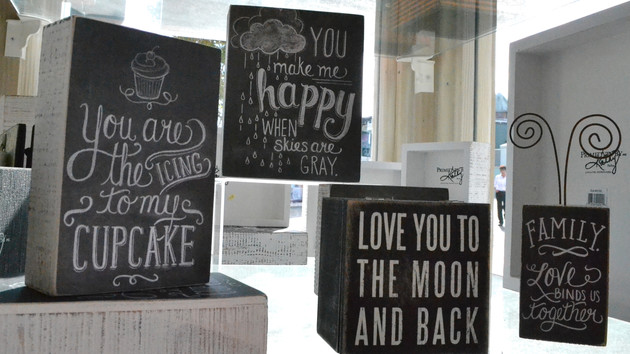 You are
the ICING
to my
CUPCAKE
YOU
make me
happy
WHEN
skies are
GRAY.
LOVE YOU TO
THE MOON
AND BACK
FAMILY.
Love
BINDS US
together